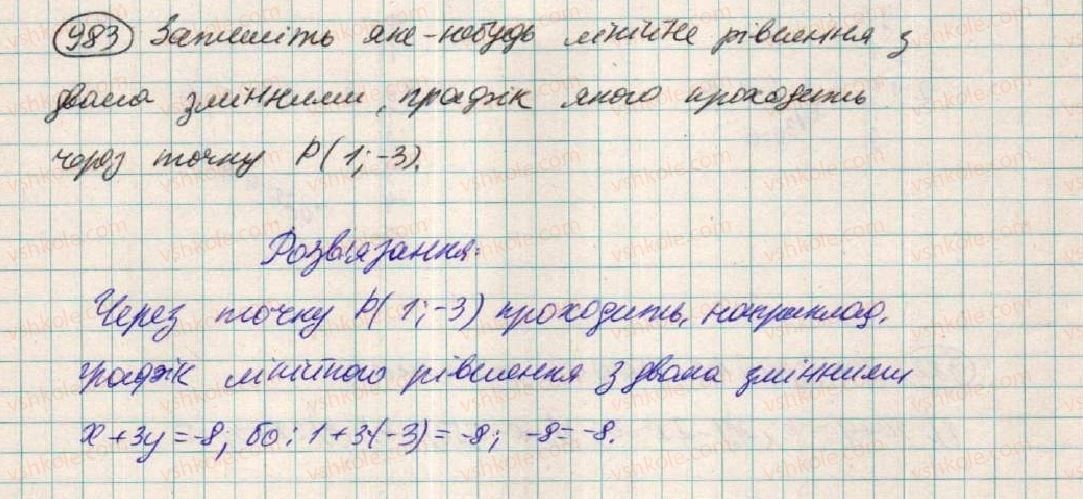 983 Запишіть яке-небудь лінійне рівняння з
двома змінними, графік якого проходить
через точку P(1; -3).
Розв'язання:
Через точку P(1; -3) проходить, наприклад,
графік лінійного рівняння з двома змінними
x + 3y = -8; бо: 1 + 3·(-3) = -8; -8 = -8.